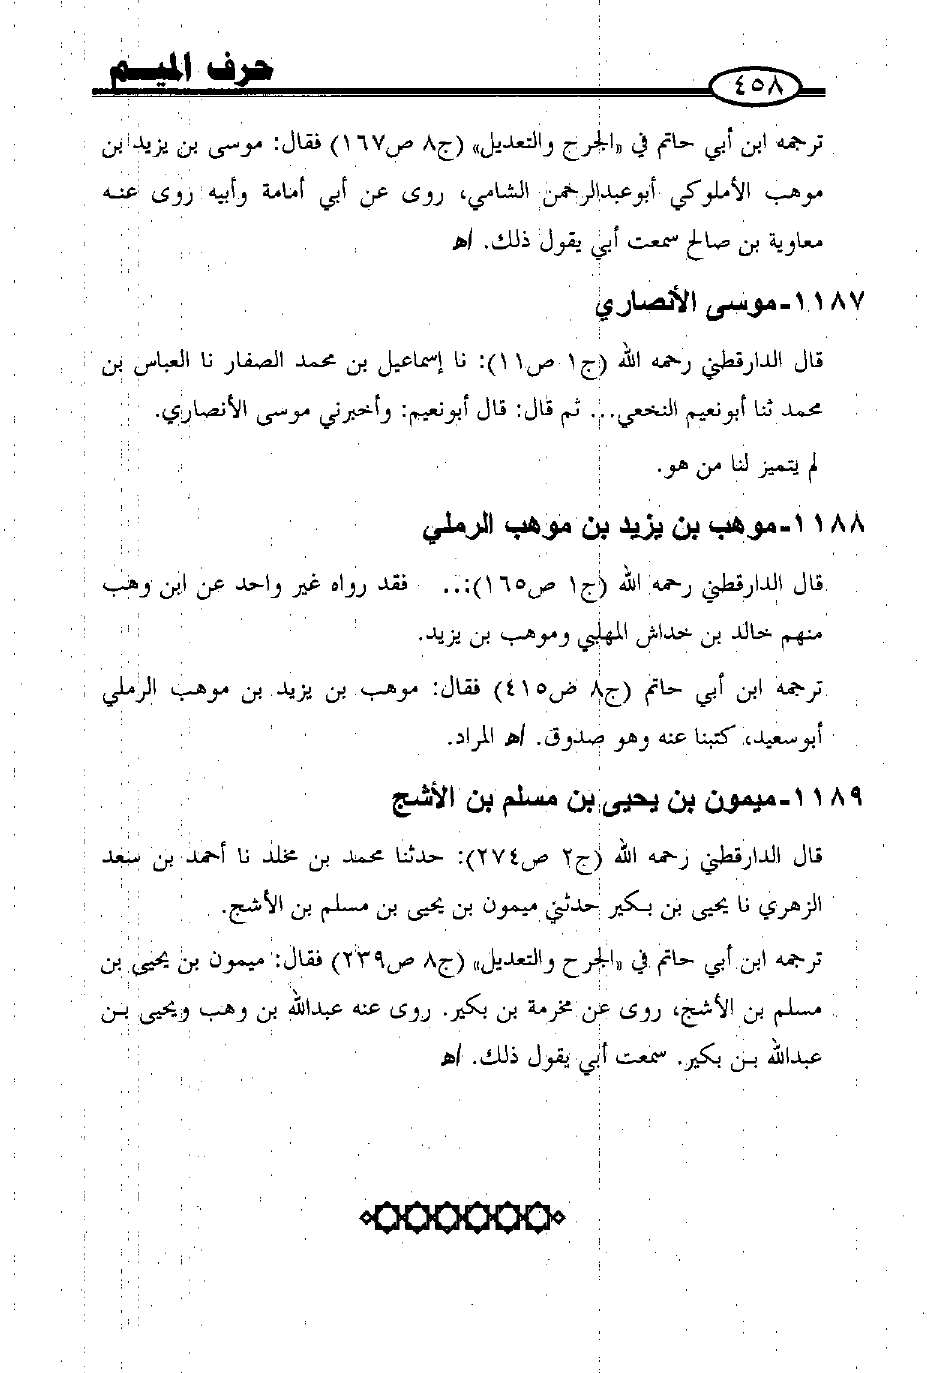 حرف الميم
٤٥٨
ترجمه ابن أبي حاتم في «الجرح والتعديل» (ج٨ ص١٦٧) فقال: موسى بن يزيد بن
موهب الأملوكي أبوعبدالرحمن الشامي، روى عن أبي أمامة وأبيه روى عنه
معاوية بن صالح سمعت أبي يقول ذلك. اﻫ
١١٨٧-موسى الأنصاري
قال الدارقطني رحمه الله (ج١ ص١١): نا إسماعيل بن محمد الصفار نا العباس بن
محمد ثنا أبونعيم النخعي... ثم قال: قال أبونعيم: وأخبرني موسى الأنصاري.
لم يتميز لنا من هو.
١١٨٨-موهب بن يزيد بن موهب الرملي
قال الدارقطني رحمه الله (ج١ ص١٦٥):... فقد رواه غير واحد عن ابن وهب
منهم خالد بن خداش المهلبي وموهب بن يزيد.
ترجمه ابن أبي حاتم (ج٨ ص٤١٥) فقال: موهب بن يزيد بن موهب الرملي
أبوسعيد، كتبنا عنه وهو صدوق. اﻫ المراد.
١١٨٩-ميمون بن يحيى بن مسلم بن الأشج
قال الدارقطني رحمه الله (ج٢ ص٢٧٤): حدثنا محمد بن مخلد نا أحمد بن سعد
الزهري نا يحيى بن بكير حدثني ميمون بن يحيى بن مسلم بن الأشج.
ترجمه ابن أبي حاتم في «الجرح والتعديل» (ج٨ ص٢٣٩) فقال: ميمون بن يحيى بن
مسلم بن الأشج، روى عن مخرمة بن بكير. روى عنه عبدالله بن وهب ويحيى بن
عبدالله بن بكير. سمعت أبي يقول ذلك. اﻫ